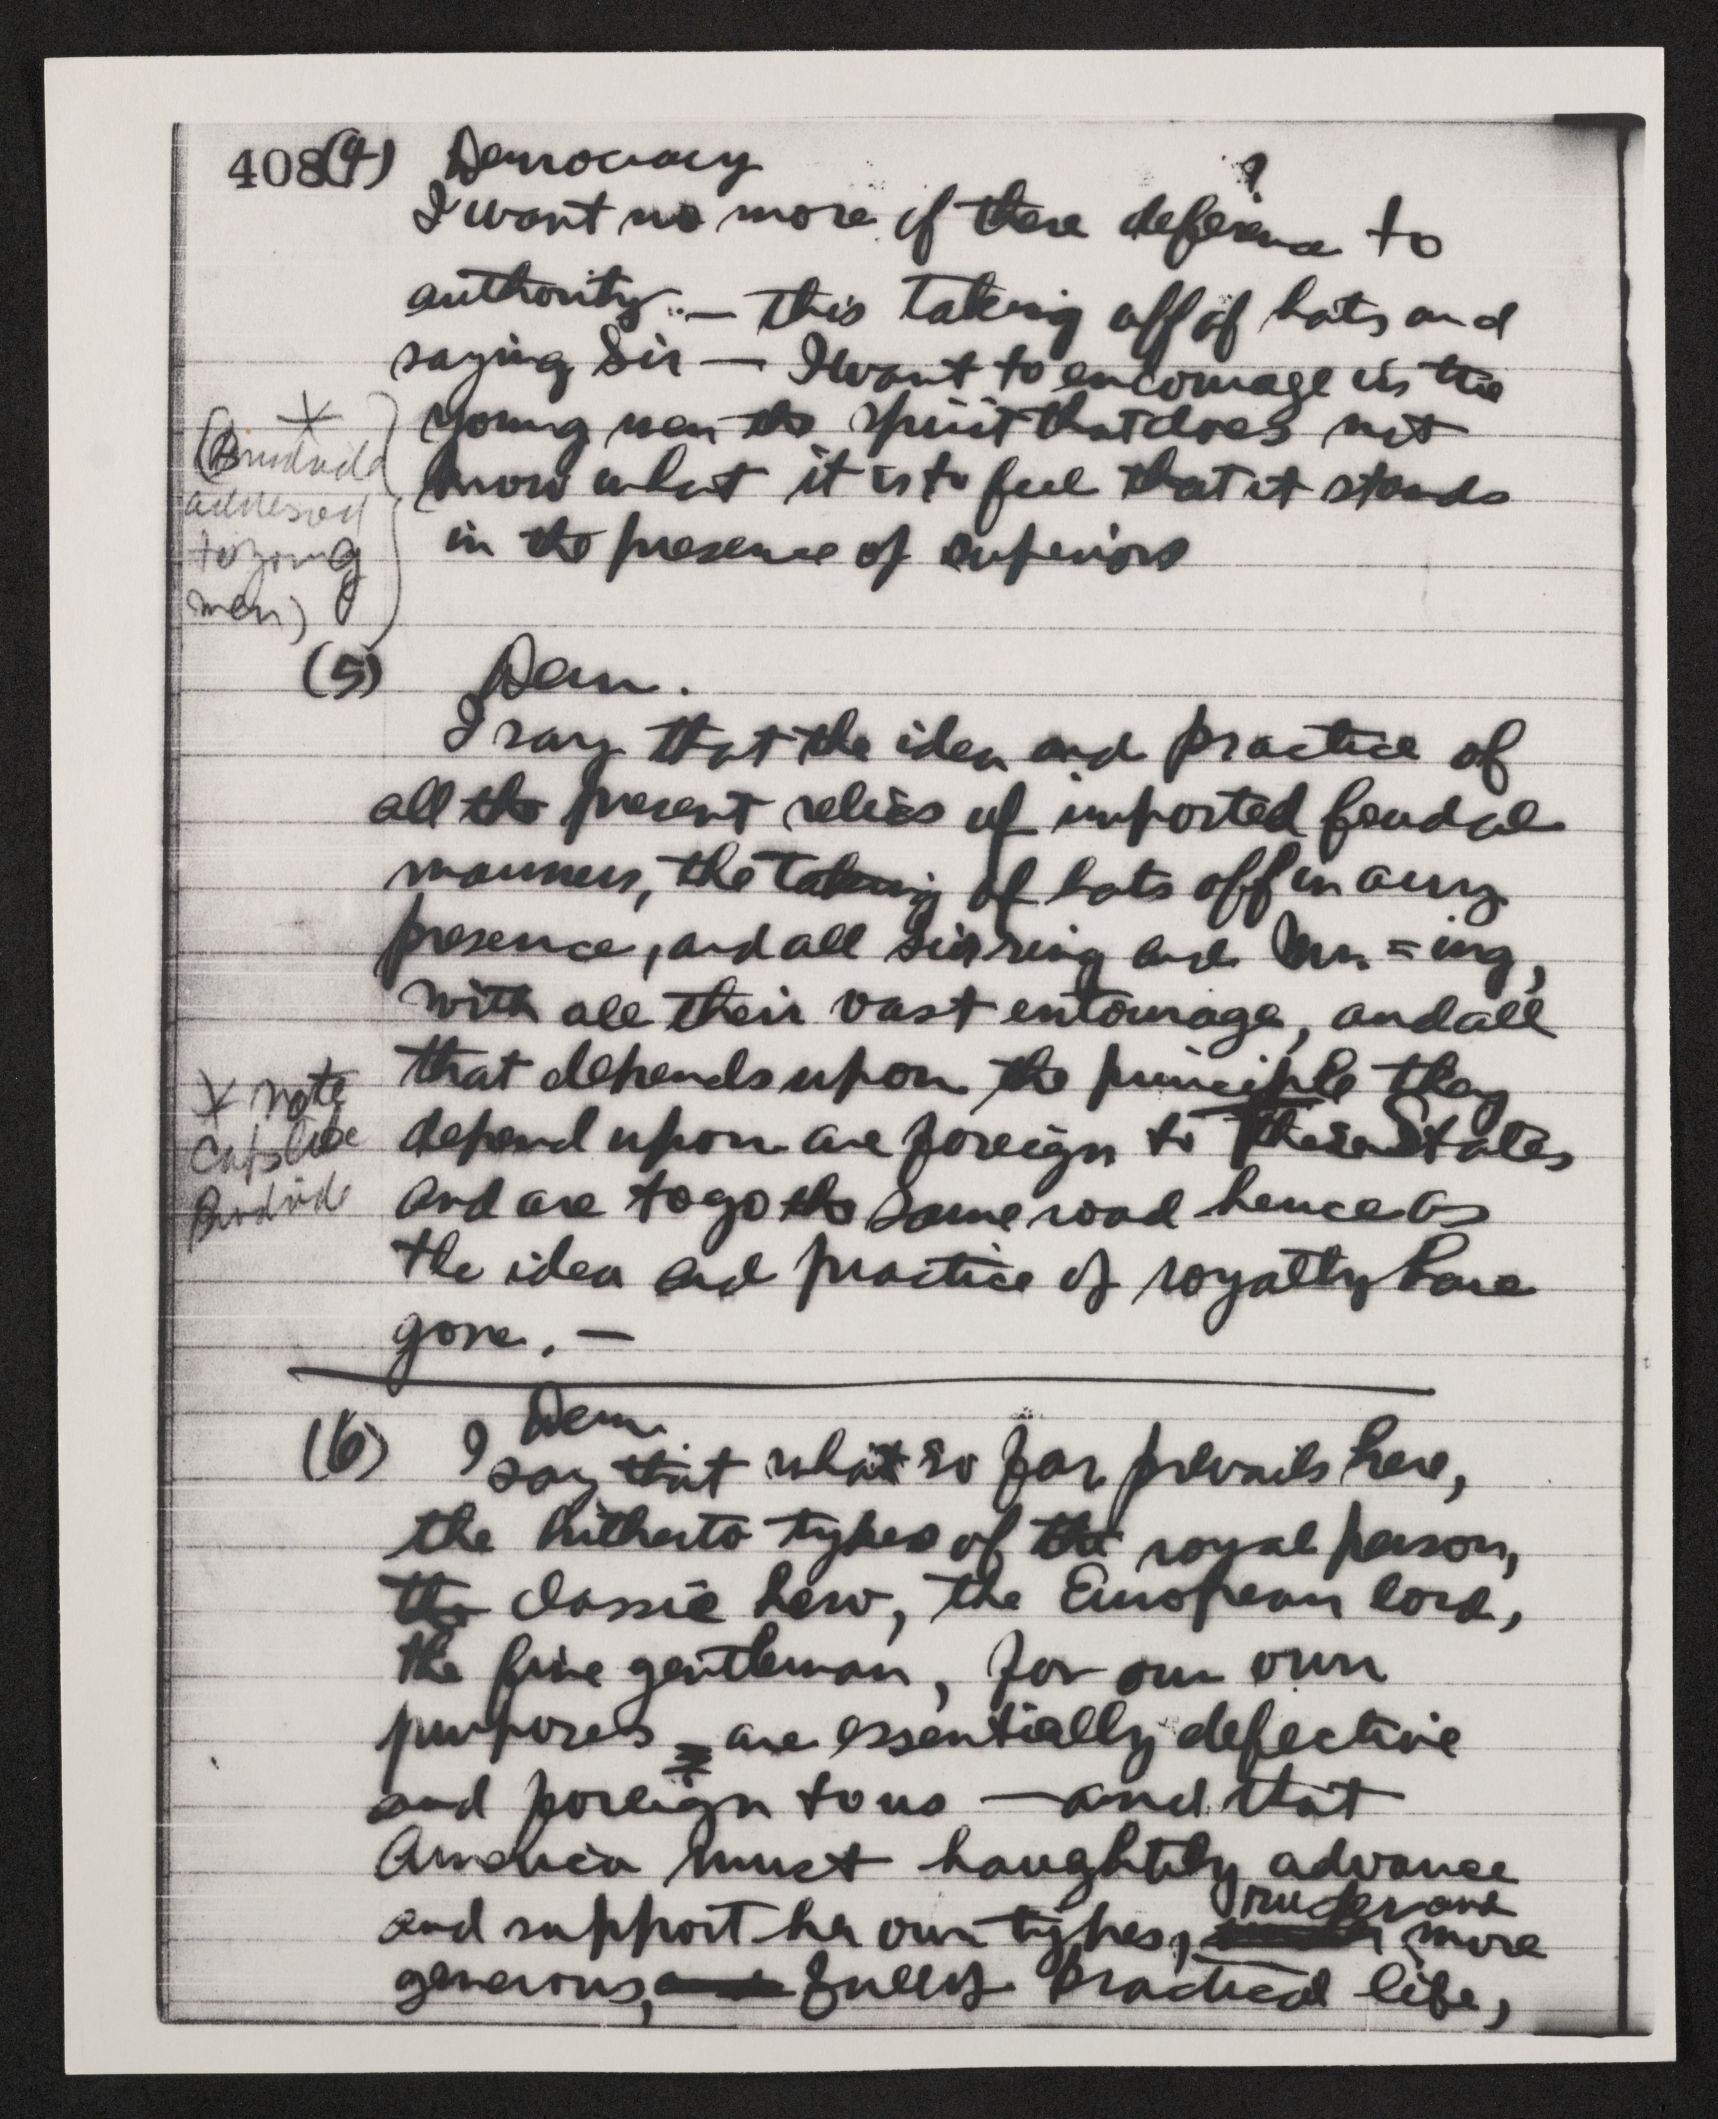 408 (4) Democracy
?
I want no more of these deference to
authority. — this taking off of hats and
saying Sir — I want to encourage in the
young men the spirit that does not
know what it is to feel that it stands
in the presence of superiors
(Brudnide
addressed
to young
men)
(5) Dem.
I say that the idea and practice of
all the present relics of imported feudal
manners, the taking of hats off in any
presence, and all sirring and Mr. = ing,
with all their vast entourage, and all
that depends upon the principle they
depend upon are foreign to These States
and are to go the same road hence as
the idea and practice of royalty have
gone. —
* note
caps like
(6) Dem.
I say that what so far prevails here,
the hitherto types of the royal person,
the classic hero, the European lord,
the fine gentleman, for our own
purposes = are essentially defective
and foreign to us — and that
America must haughtily advance
and support her own types, ruder and more
generous, fully practical life,